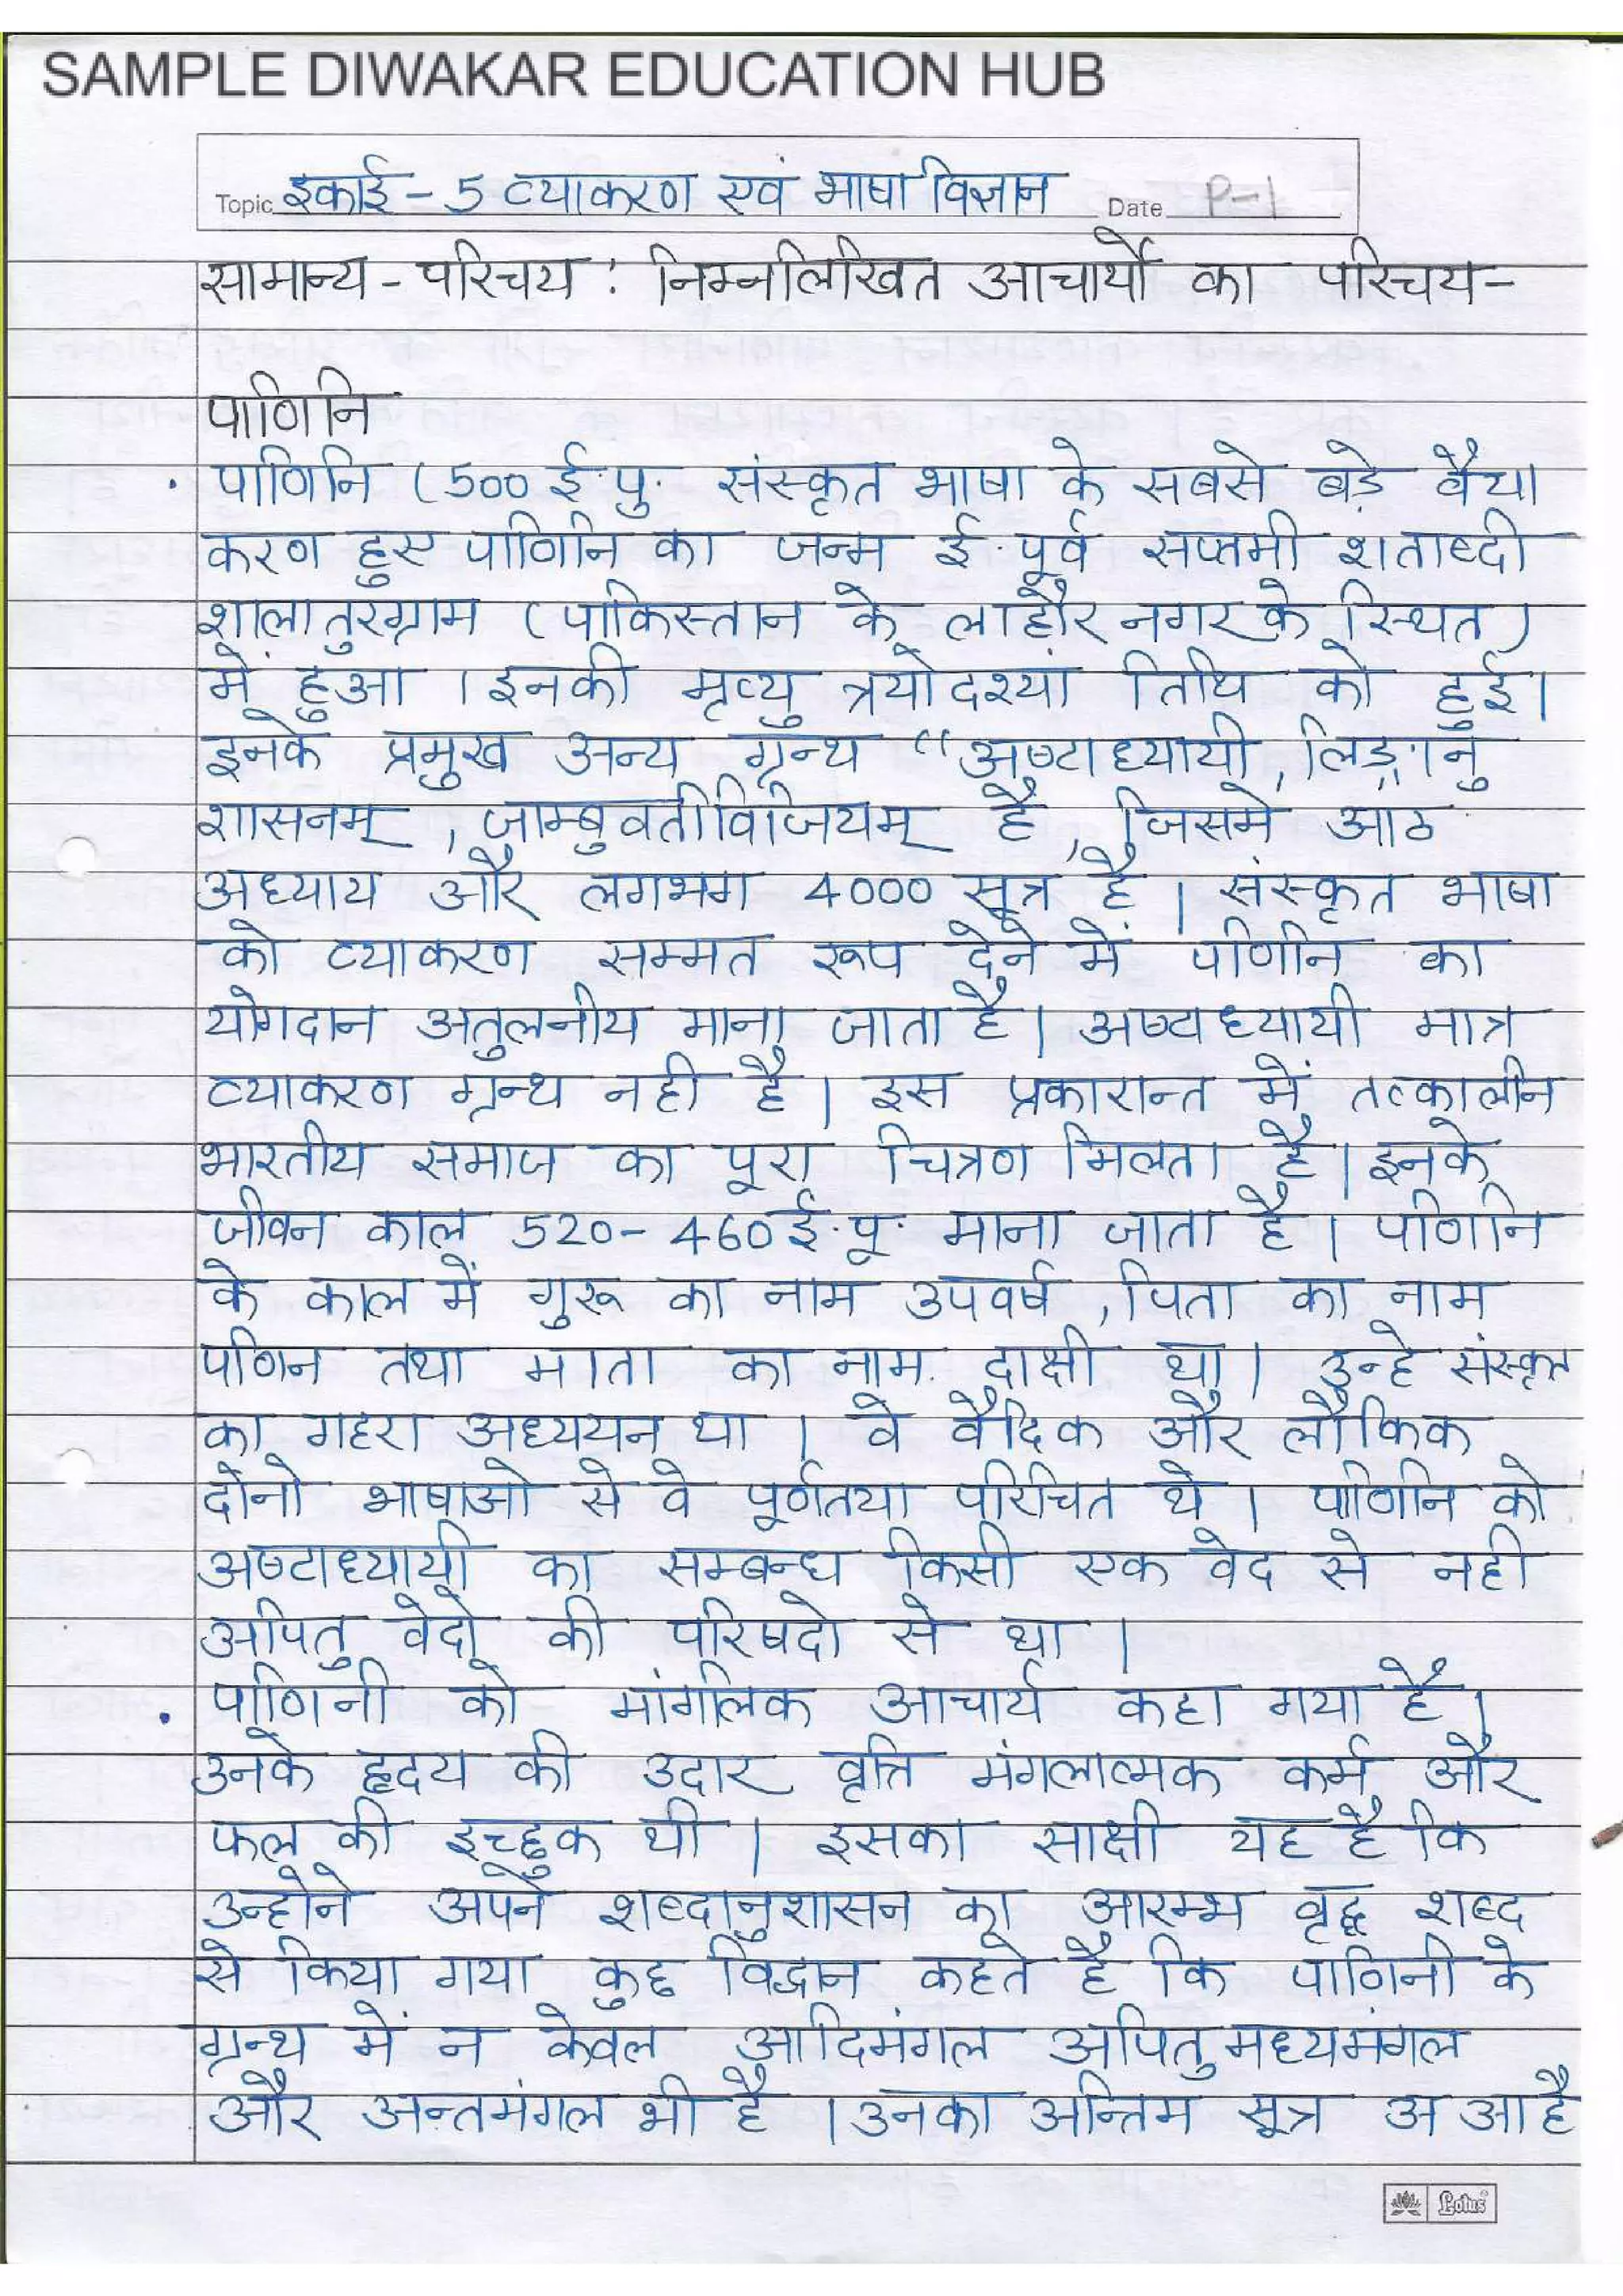 SAMPLE DIWAKAR EDUCATION HUB
Topic इकाई - 5 व्याकरण एवं भाषा विज्ञान Date P-1
सामान्य - परिचय : निम्नलिखित आचार्यों का परिचय-
पाणिनि
• पाणिनि (500 ई.पु. संस्कृत भाषा के सबसे बड़े वैया
करण हुए पाणिनि का जन्म ई.पूर्व सप्तमी शताब्दी
शालातुरग्राम (पाकिस्तान के लाहौर नगर के स्थित)
में हुआ । इनकी मृत्यु त्रयोदश्यां तिथि को हुई।
इनके प्रमुख अन्य ग्रन्थ “अष्टाध्यायी, लिड़्गानु
शासनम्, जाम्बुवतीविजियम् है, जिसमे आठ
अध्याय और लगभग 4000 सूत्र है । संस्कृत भाषा
को व्याकरण सम्मत रूप देने में पाणिनि का
योगदान अतुलनीय माना जाता है। अष्टाध्यायी मात्र
व्याकरण ग्रन्थ नही है। इस प्रकारान्त में तत्कालीन
भारतीय समाज का पूरा चित्रण मिलता है। इनके
जीवन काल 520-460 ई.पू. माना जाता है। पाणिनि
के काल में गुरू का नाम उपवर्ष, पिता का नाम
पणिन तथा माता का नाम दाक्षी था। उन्हे संस्कृत
का गहरा अध्ययन था । वे वैदिक और लौकिक
दोनो भाषाओ से वे पूर्णतया परिचित थे । पाणिनि की
अष्टाध्यायी का सम्बन्ध किसी एक वेद से नही
अपितु वेदो की परिषदो से था ।
• पाणिनी को मांगलिक आचार्य कहा गया है।
उनके हृदय की उदार वृत्ति मंगलात्मक कर्म और
फल की इच्छुक थी । इसका साक्षी यह है कि
उन्होने अपने शब्दानुशासन का आरम्भ वृद्ध शब्द
से किया गया कुछ विद्वान कहते है कि पाणिनी के
ग्रन्थ में न केवल आदिमंगल अपितु मध्यमंगल
और अन्तमंगल भी है । उनका अन्तिम सूत्र अ आ है
Lotus